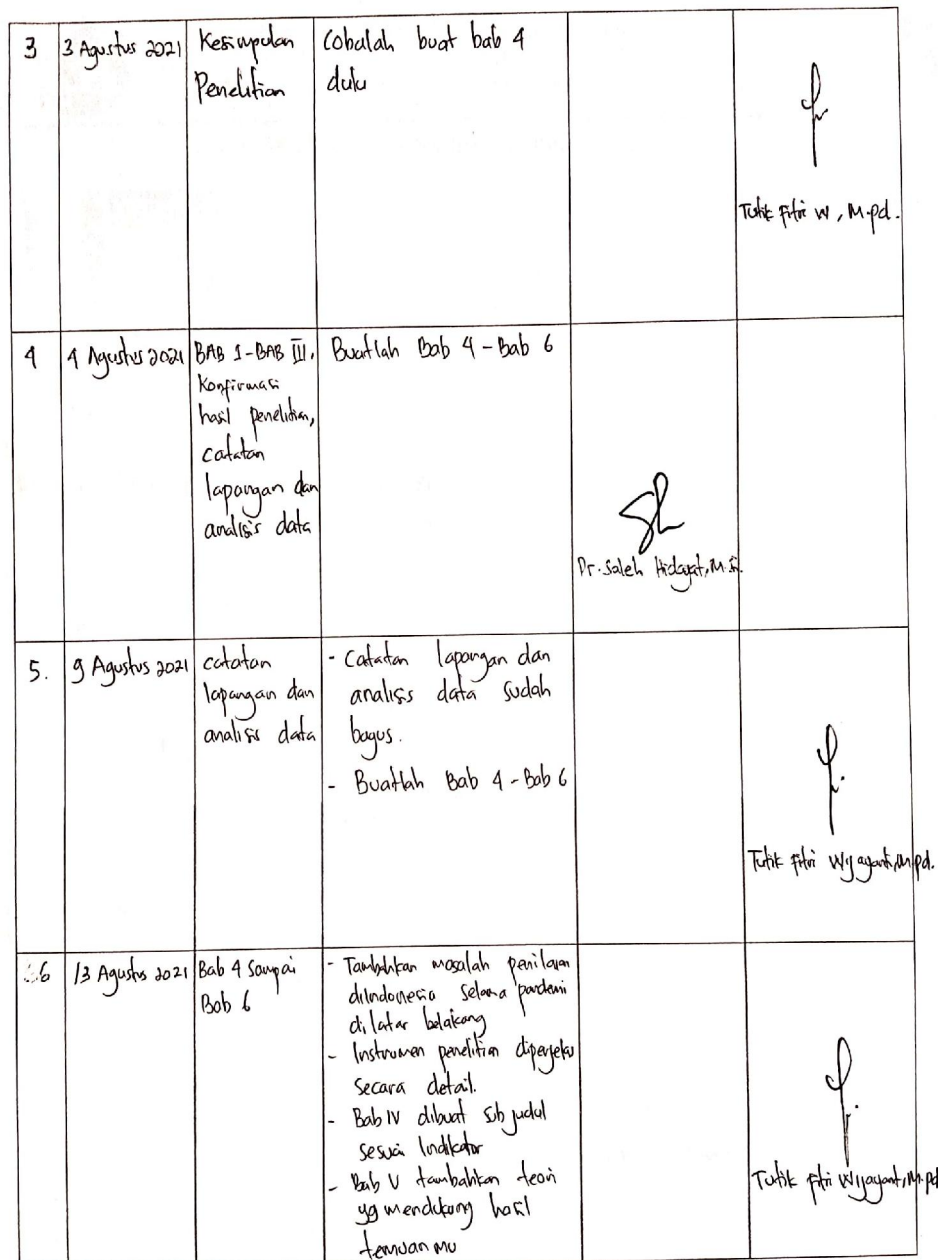 3
3 Agustus 2021
Kesimpulan
Penelitian
Cobalah buat bab 4
dulu
Tutik Fitri W, M.pd.
4
4 Agustus 2021
BAB I - BAB III,
Konfirmasi
hasil penelitian,
catatan
lapangan dan
analisis data
Buatlah Bab 4 - Bab 6
Dr. Saleh Hidayat, M.Si.
5.
9 Agustus 2021
catatan
lapangan dan
analisis data
- Catatan lapangan dan
analisis data sudah
bagus.
- Buatlah Bab 4 - Bab 6
Tutik Fitri Wijayanti, M.pd.
6
13 Agustus 2021
Bab 4 Sampai
Bab 6
- Tambahkan masalah penilaian
diIndonesia selama pandemi
dilatar belakang
- Instrumen penelitian diperjelas
secara detail.
- Bab IV dibuat sub judul
sesuai Indikator
- Bab V tambahkan teori
yg mendukung hasil
temuan mu
Tutik Fitri Wijayanti, M.pd